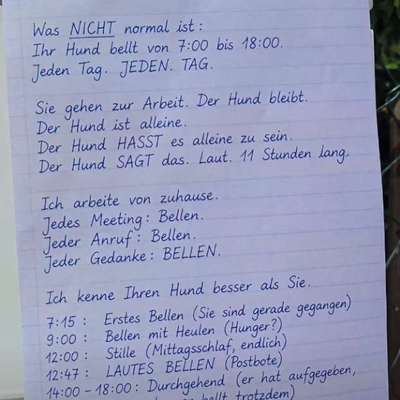 Was NICHT normal ist:
Ihr Hund bellt von 7:00 bis 18:00.
Jeden Tag. JEDEN. TAG.
Sie gehen zur Arbeit. Der Hund bleibt.
Der Hund ist alleine.
Der Hund HASST es alleine zu sein.
Der Hund SAGT das. Laut. 11 Stunden lang.
Ich arbeite von zuhause.
Jedes Meeting: Bellen.
Jeder Anruf: Bellen.
Jeder Gedanke: BELLEN.
Ich kenne Ihren Hund besser als Sie.
7:15 : Erstes Bellen (Sie sind gerade gegangen)
9:00 : Bellen mit Heulen (Hunger?)
12:00 : Stille (Mittagsschlaf, endlich)
12:47 : LAUTES BELLEN (Postbote)
14:00-18:00: Durchgehend (er hat aufgegeben,
bellt trotzdem)